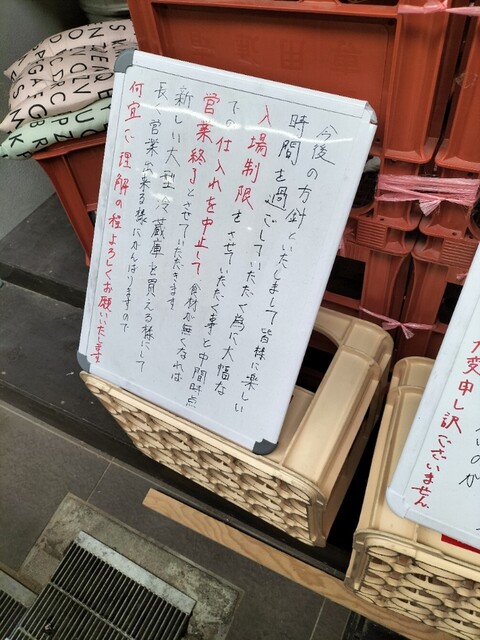 今後の方針といたしまして皆様に楽しい
時間を過ごしていただく為に大幅な
入場制限をさせていただく事と中間時点
での仕入れを中止して食材が無くなれば
営業終了とさせていただきます
新しい大型冷蔵庫を買える様にして
長く営業出来る様にがんばりますので
何宜で理解の程よろしくお願いいたします
大変申し訳ございません